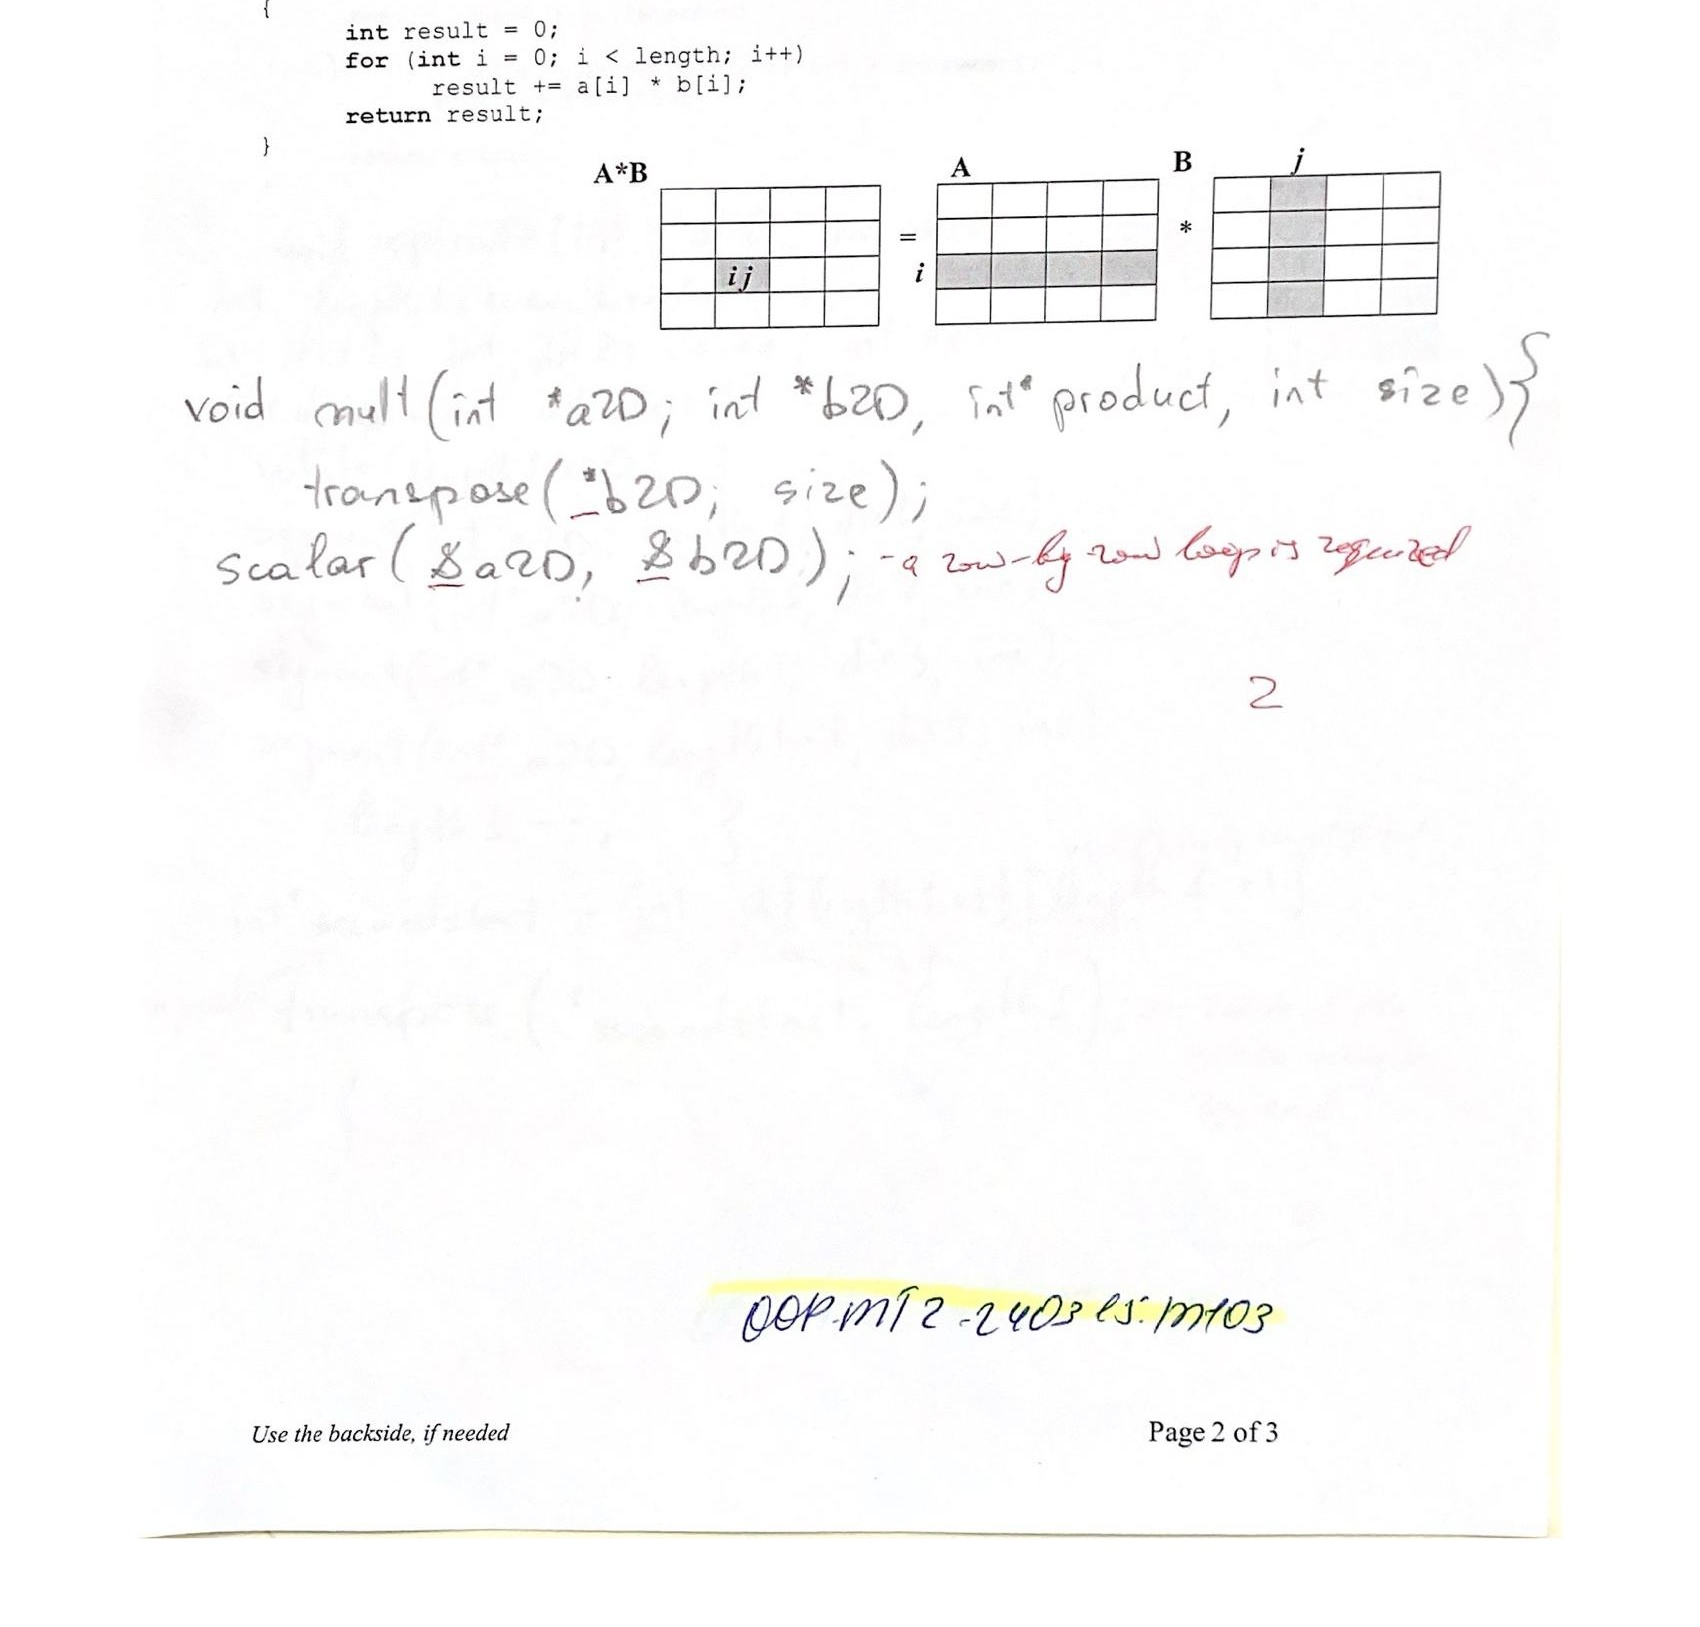 {
int result = 0;
for (int i = 0; i < length; i++)
result += a[i] * b[i];
return result;
}
A*B
A
B
j
=
*
i
ij
void mult(int *a2D; int *b2D, int* product, int size){
transpose(*b2D; size);
scalar(&a2D, &b2D); - a row-by row loop is required
2
OOP.MT2-2403
Use the backside, if needed
Page 2 of 3